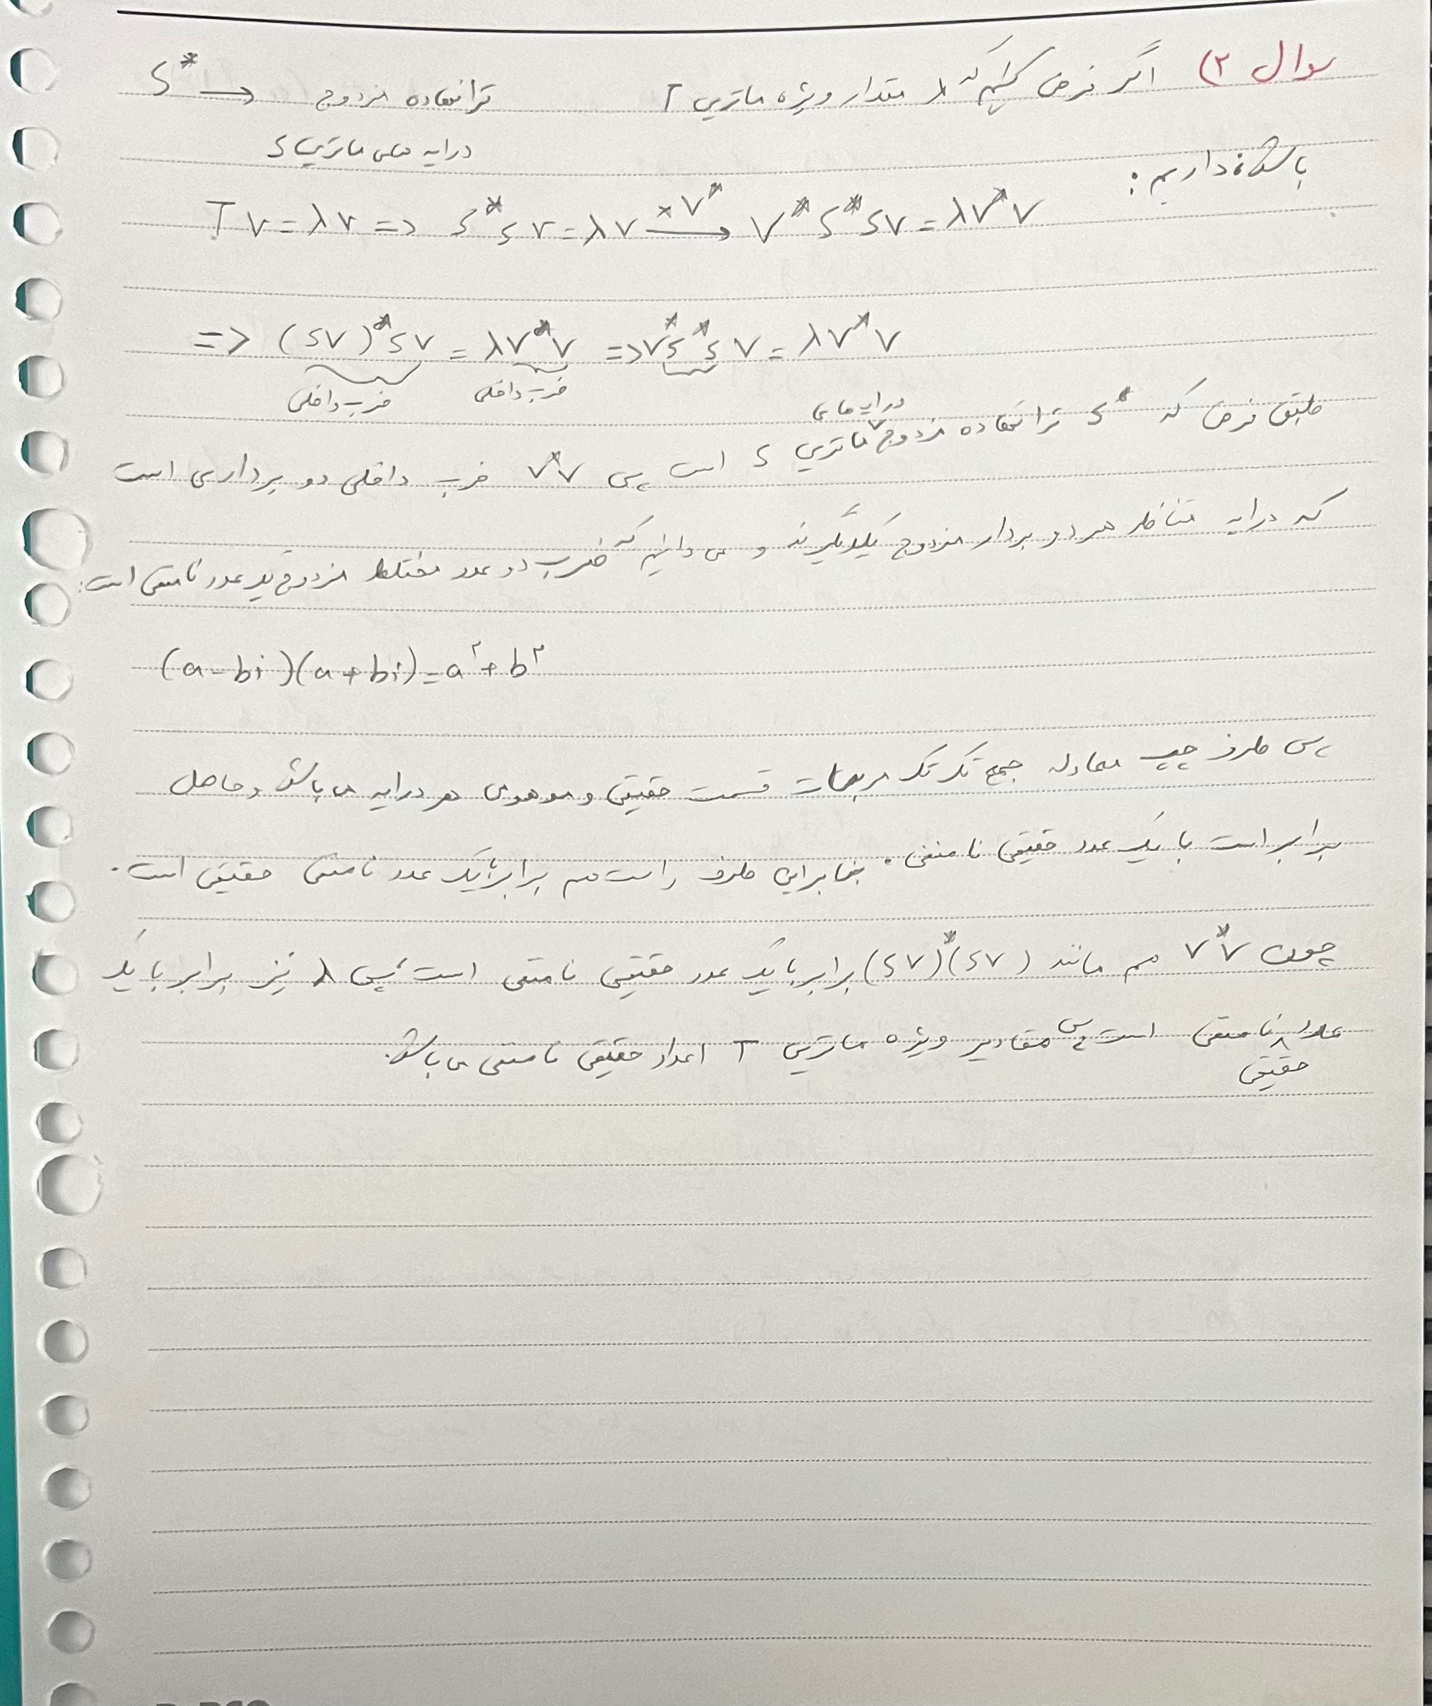 سوال ۲) اگر فرض کنیم که λ مقدار ویژه ماتریس T ترانهاده مزدوج → S*
درایه های ماتریس S
باشد، داریم:
Tv = λv => S*Sv = λv ×v*→ v*S*Sv = λv*v
=> (Sv)*Sv = λv*v => v*S*Sv = λv*v
ضرب داخلی ضرب داخلی
طبق فرض که S* ترانهاده مزدوج درایه های ماتریس S است پس v*v ضرب داخلی دو برداری است
که درایه متناظر هر دو بردار مزدوج یکدیگرند و می دانیم که ضرب دو عدد مختلط مزدوج یک عدد نامنفی است:
(a-bi)(a+bi)=a²+b²
پس طرف چپ معادله جمع تک تک مربعات قسمت حقیقی و موهومی هر درایه می باشد و حاصل
برابر است با یک عدد حقیقی نامنفی. بنابراین طرف راست هم برابر با یک عدد نامنفی حقیقی است.
چون v*v هم مانند (Sv)*(Sv) برابر با یک عدد حقیقی نامنفی است، پس λ نیز برابر با یک
عدد حقیقی نامنفی است پس مقادیر ویژه ماتریس T اعداد حقیقی نامنفی می باشد.